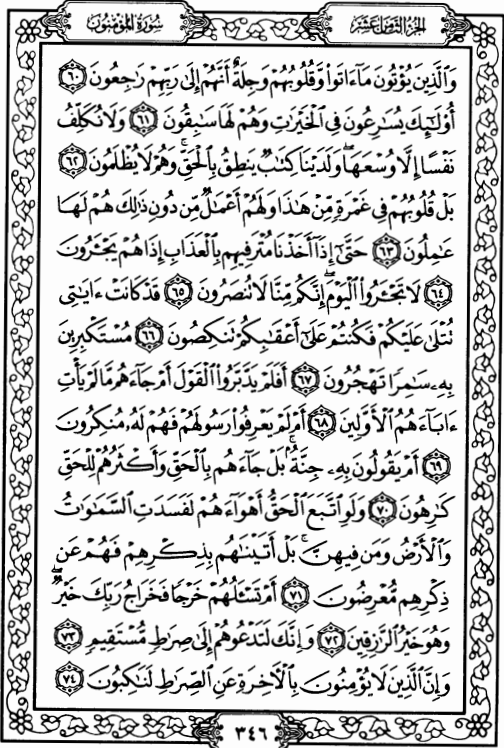 سُورَةُ المُؤْمِنُونَ
الجُزْءُ الثَّامِنَ عَشَرَ
وَٱلَّذِينَ يُؤْتُونَ مَآ ءَاتَوا۟ وَّقُلُوبُهُمْ وَجِلَةٌ أَنَّهُمْ إِلَىٰ رَبِّهِمْ رَٰجِعُونَ ٦٠
أُو۟لَٰٓئِكَ يُسَٰرِعُونَ فِى ٱلْخَيْرَٰتِ وَهُمْ لَهَا سَٰبِقُونَ ٦١ وَلَا نُكَلِّفُ
نَفْسًا إِلَّا وُسْعَهَا ۖ وَلَدَيْنَا كِتَٰبٌ يَنطِقُ بِٱلْحَقِّ ۚ وَهُمْ لَا يُظْلَمُونَ ٦٢
بَلْ قُلُوبُهُمْ فِى غَمْرَةٍ مِّنْ هَٰذَا وَلَهُمْ أَعْمَٰلٌ مِّن دُونِ ذَٰلِكَ هُمْ لَهَا
عَٰمِلُونَ ٦٣ حَتَّىٰٓ إِذَآ أَخَذْنَا مُتْرَفِيهِم بِٱلْعَذَابِ إِذَا هُمْ يَجْـَٔرُونَ
٦٤ لَا تَجْـَٔرُوا۟ ٱلْيَوْمَ ۖ إِنَّكُم مِّنَّا لَا تُنصَرُونَ ٦٥ قَدْ كَانَتْ ءَايَٰتِى
تُتْلَىٰ عَلَيْكُمْ فَكُنتُمْ عَلَىٰٓ أَعْقَٰبِكُمْ تَنكِصُونَ ٦٦ مُسْتَكْبِرِينَ
بِهِۦ سَٰمِرًا تَهْجُرُونَ ٦٧ أَفَلَمْ يَدَّبَّرُوا۟ ٱلْقَوْلَ أَمْ جَآءَهُم مَّا لَمْ يَأْتِ
ءَابَآءَهُمُ ٱلْأَوَّلِينَ ٦٨ أَمْ لَمْ يَعْرِفُوا۟ رَسُولَهُمْ فَهُمْ لَهُۥ مُنكِرُونَ
٦٩ أَمْ يَقُولُونَ بِهِۦ جِنَّةٌۢ ۚ بَلْ جَآءَهُم بِٱلْحَقِّ وَأَكْثَرُهُمْ لِلْحَقِّ
كَٰرِهُونَ ٧٠ وَلَوِ ٱتَّبَعَ ٱلْحَقُّ أَهْوَآءَهُمْ لَفَسَدَتِ ٱلسَّمَٰوَٰتُ
وَٱلْأَرْضُ وَمَن فِيهِنَّ ۚ بَلْ أَتَيْنَٰهُم بِذِكْرِهِمْ فَهُمْ عَن
ذِكْرِهِم مُّعْرِضُونَ ٧١ أَمْ تَسْـَٔلُهُمْ خَرْجًا فَخَرَاجُ رَبِّكَ خَيْرٌ ۖ
وَهُوَ خَيْرُ ٱلرَّٰزِقِينَ ٧٢ وَإِنَّكَ لَتَدْعُوهُمْ إِلَىٰ صِرَٰطٍ مُّسْتَقِيمٍ ٧٣
وَإِنَّ ٱلَّذِينَ لَا يُؤْمِنُونَ بِٱلْءَاخِرَةِ عَنِ ٱلصِّرَٰطِ لَنَٰكِبُونَ ٧٤
٣٤٦